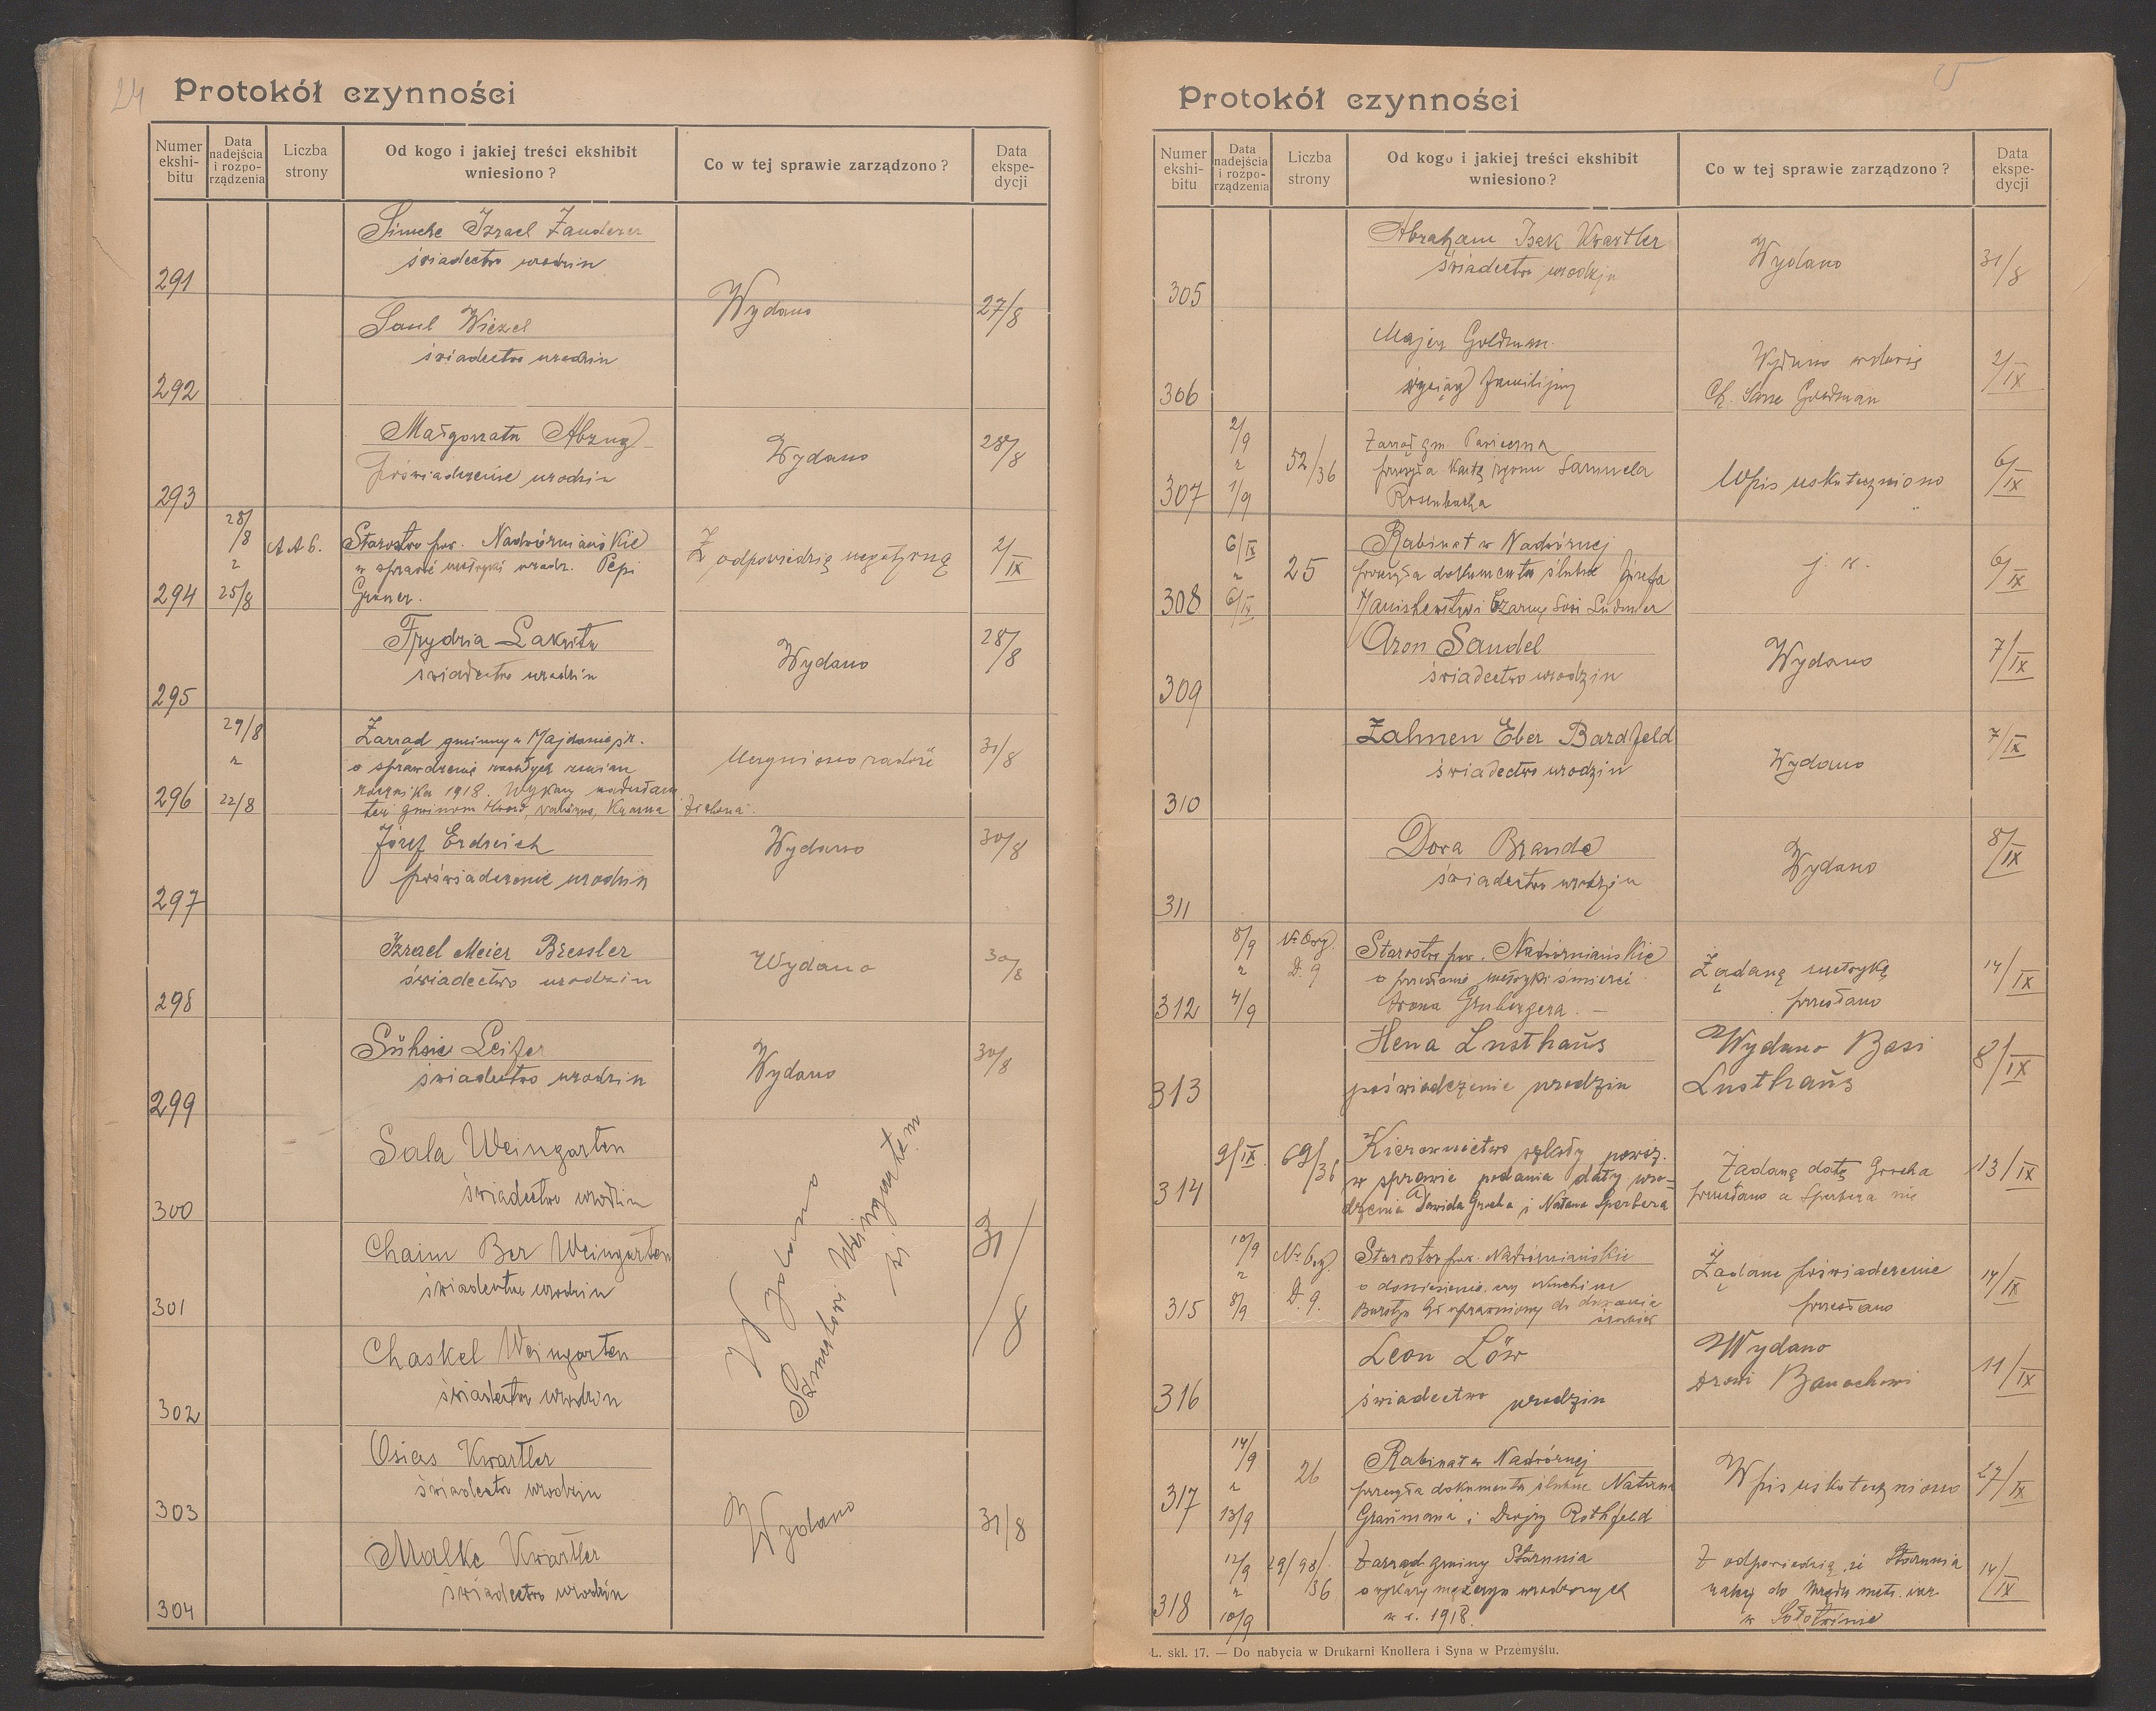 24
Protokół czynności
Numer ekshi-bitu
Data nadejścia i rozpo-rządzenia
Liczba strony
Od kogo i jakiej treści ekshibit wniesiono?
Co w tej sprawie zarządzono?
Data ekspe-dycji
Simche Izrael Zanderer
świadectwo urodzin
291
Saul Wiezel
Wydano
27/8
świadectwo urodzin
292
Małgorzata Abzug
Wydano
28/8
poświadczenie urodzin
293
28/8
Starostwo pow. Nadwórniańskie
Z odpowiedzią negatywną
2/IX
w sprawie metryki urodz. Pepi
294
z
25/8
AA6.
Graner.
Frydzia Lakritz
Wydano
28/8
świadectwo urodzin
295
29/8
Zarząd gminny w Majdanie śr.
31/8
z
o sprawdzenie
rocznika 1918. Wykazy
296
22/8
też gminom
Zielona.
Józef Erdreich
Wydano
30/8
poświadczenie urodzin
297
Izrael Meier Bressler
Wydano
30/8
świadectwo urodzin
298
Sühsie Leifer
Wydano
30/8
świadectwo urodzin
299
Sala Weingarten
świadectwo urodzin
300
Chaim Ber Weingarten
Wydano
Samuelowi Weingarten
31/8
świadectwo urodzin
301
Chaskel Weingarten
świadectwo urodzin
302
Osias Kwartler
świadectwo urodzin
303
Wydano
31/8
Malke Kwartler
świadectwo urodzin
304
25
Protokół czynności
Numer ekshi-bitu
Data nadejścia i rozpo-rządzenia
Liczba strony
Od kogo i jakiej treści ekshibit wniesiono?
Co w tej sprawie zarządzono?
Data ekspe-dycji
Abraham Isak Kwartler
Wydano
31/8
świadectwo urodzin
305
Majer Goldman
Wydano
2/IX
wyciąg familijny
Ch. Sore Goldman
306
2/9
Zarząd gm. Pasieczna
52/36
przesyła kartę zgonu Samuela
Wpis uskuteczniono
6/IX
307
z
1/9
Rosenbacha
6/IX
Rabinat w Nadwórnej
25
przesyła dokumenta ślubne Józefa
j. w.
6/IX
308
z
6/IX
Aron Sandel
Wydano
7/IX
świadectwo urodzin
309
Zalmen Eber Bardfeld
Wydano
7/IX
świadectwo urodzin
310
Dora Brande
Wydano
8/IX
świadectwo urodzin
311
8/9
D. 9
Starostwo pow. Nadwórniańskie
Żądaną metrykę
14/IX
z
o przesłanie metryki śmierci
przesłano
312
4/9
Arona Grubergera. —
Hena Lusthaus
Wydano Basi
8/IX
313
poświadczenie urodzin
Lusthaus
9/IX
69/36
Kierownictwo szkoły powsz.
w sprawie podania daty uro-
Żądaną datę Grocha
13/IX
314
dzenia Dawida Grocha i Natana Sperbera
przesłano a Sperbera nie
10/9
Starostwo pow. Nadwórniańskie
Żądane poświadczenie
14/IX
z
D. 9.
o doniesienie, czy Nuchim
315
8/9
przesłano
Leon Löw
Wydano
11/IX
316
świadectwo urodzin
Drowi Banachowi
14/9
26
Rabinat w Nadwórnej
Wpis uskuteczniono
27/IX
z
przesyła dokumenta ślubne Natana
317
13/9
Graumana i Dwojry Rothfeld
12/9
Zarząd gminy Starunia
Z odpowiedzią, że Starunia
14/IX
z
o wykazy mężczyzn urodzonych
należy do Urzędu metr. izr.
318
10/9
w r. 1918.
w Sołotwinie
L. skl. 17. — Do nabycia w Drukarni Knollera i Syna w Przemyślu.